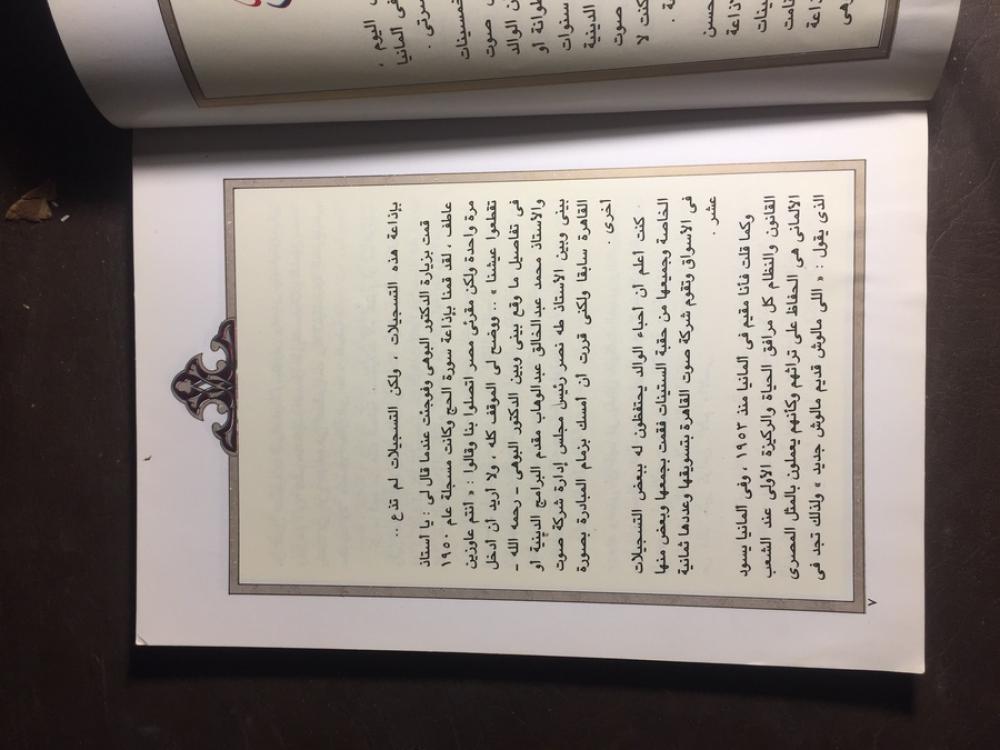 بإذاعة هذه التسجيلات ، ولكن التسجيلات لم تذع ..
قمت بزيارة الدكتور البوهى وفوجئت عندما قال لى : يا أستاذ
عاطف ، لقد قمنا بإذاعة سورة الحج وكانت مسجلة عام ١٩٥٠
مرة واحدة ولكن مقرئى مصر اتصلوا بنا وقالوا : « انتم عاوزين
تقطعوا عيشنا » .. ووضح لى الموقف كله ، ولا أريد أن أدخل
فى تفاصيل ما وقع بينى وبين الدكتور البوهى - رحمه الله -
والأستاذ محمد عبدالخالق عبدالوهاب مقدم البرامج الدينية أو
بينى وبين الأستاذ طه نصر رئيس مجلس إدارة شركة صوت
القاهرة سابقا ولكنى قررت أن أمسك بزمام المبادرة بصورة
أخرى .
كنت أعلم أن أحباء الوالد يحتفظون له ببعض التسجيلات
الخاصة وجميعها من حقبة الستينات فقمت بجمعها وبعض منها
فى الأسواق وتقوم شركة صوت القاهرة بتسويقها وعددها ثمانية
عشر .
وكما قلت فأنا مقيم فى ألمانيا منذ ١٩٥٣ ، وفى ألمانيا يسود
القانون والنظام كل مرافق الحياة والركيزة الأولى عند الشعب
الألمانى هى الحفاظ على تراثهم وكأنهم يعملون بالمثل المصرى
الذى يقول : « اللى مالوش قديم مالوش جديد » ولذلك تجد فى
٧
اليوم ،
فى ألمانيا
الوالد
صوت
سنوات
الدينية
صوت
كنت لا